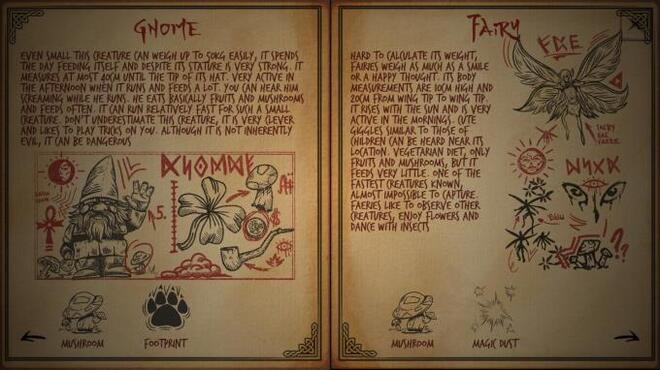 GNOME
EVEN SMALL THIS CREATURE CAN WEIGH UP TO 50KG EASILY, IT SPENDS
THE DAY FEEDING ITSELF AND DESPITE ITS STATURE IS VERY STRONG. IT
MEASURES AT MOST 40CM UNTIL THE TIP OF ITS HAT. VERY ACTIVE IN
THE AFTERNOON WHEN IT RUNS AND FEEDS A LOT. YOU CAN HEAR HIM
SCREAMING WHILE HE RUNS. HE EATS BASICALLY FRUITS AND MUSHROOMS
AND FEEDS OFTEN. IT CAN RUN RELATIVELY FAST FOR SUCH A SMALL
CREATURE. DON'T UNDERESTIMATE THIS CREATURE, IT IS VERY CLEVER
AND LIKES TO PLAY TRICKS ON YOU. ALTHOUGH IT IS NOT INHERENTLY
EVIL, IT CAN BE DANGEROUS
MUSHROOM
FOOTPRINT
FAIRY
HARD TO CALCULATE ITS WEIGHT,
FAIRIES WEIGH AS MUCH AS A SMILE
OR A HAPPY THOUGHT. ITS BODY
MEASUREMENTS ARE 10CM HIGH AND
20CM FROM WING TIP TO WING TIP.
IT RISES WITH THE SUN AND IS VERY
ACTIVE IN THE MORNINGS. CUTE
GIGGLES SIMILAR TO THOSE OF
CHILDREN CAN BE HEARD NEAR ITS
LOCATION. VEGETARIAN DIET, ONLY
FRUITS AND MUSHROOMS, BUT IT
FEEDS VERY LITTLE. ONE OF THE
FASTEST CREATURES KNOWN,
ALMOST IMPOSSIBLE TO CAPTURE.
FAERIES LIKE TO OBSERVE OTHER
CREATURES, ENJOY FLOWERS AND
DANCE WITH INSECTS
??
MUSHROOM
MAGIC DUST